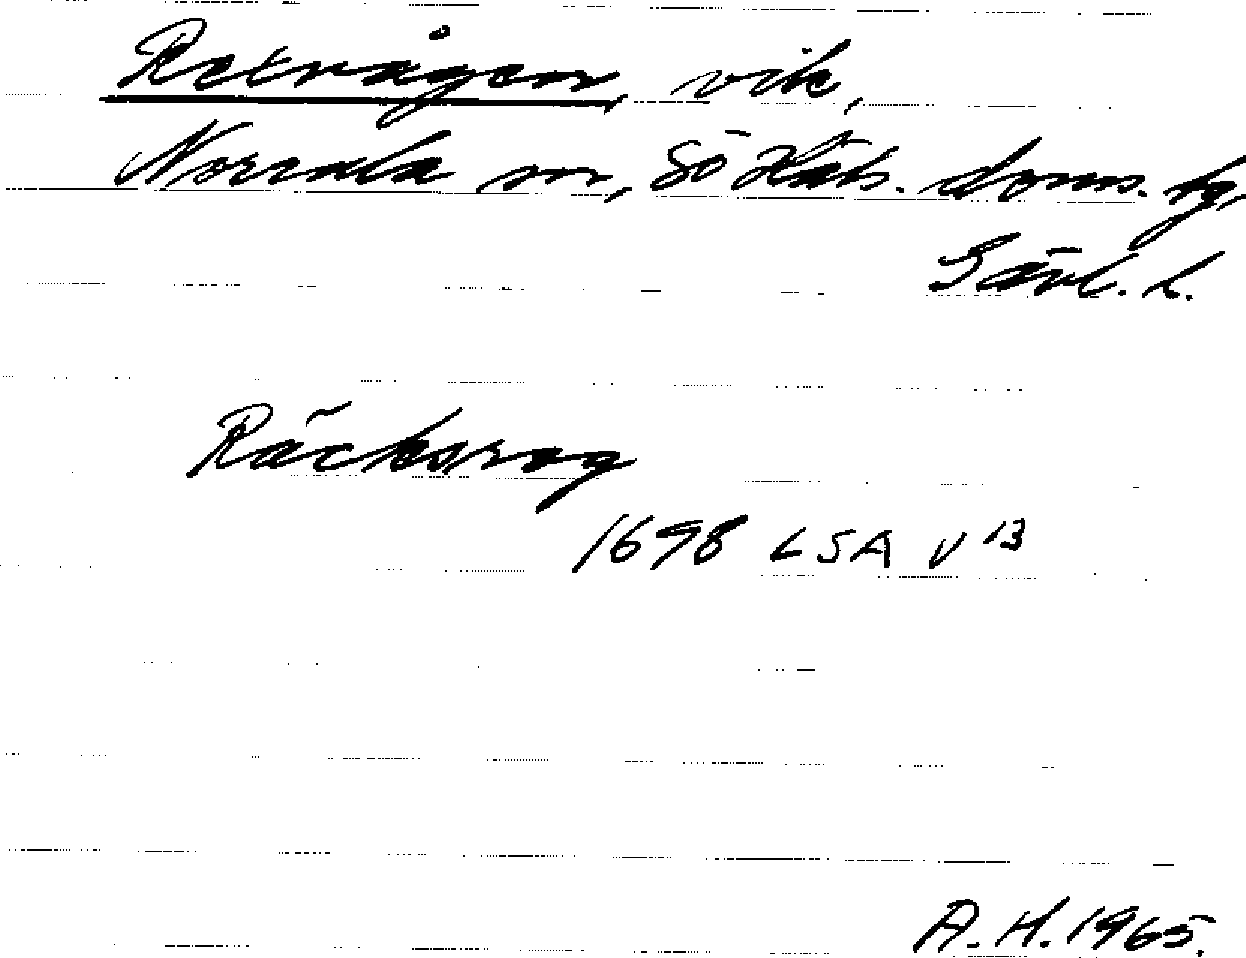 Rexvågen, vik,
Norrala sn, Sö Häls. doms. tg,
Gävl. l.
Räcksvag
1698 LSA V 13
A. H. 1965.